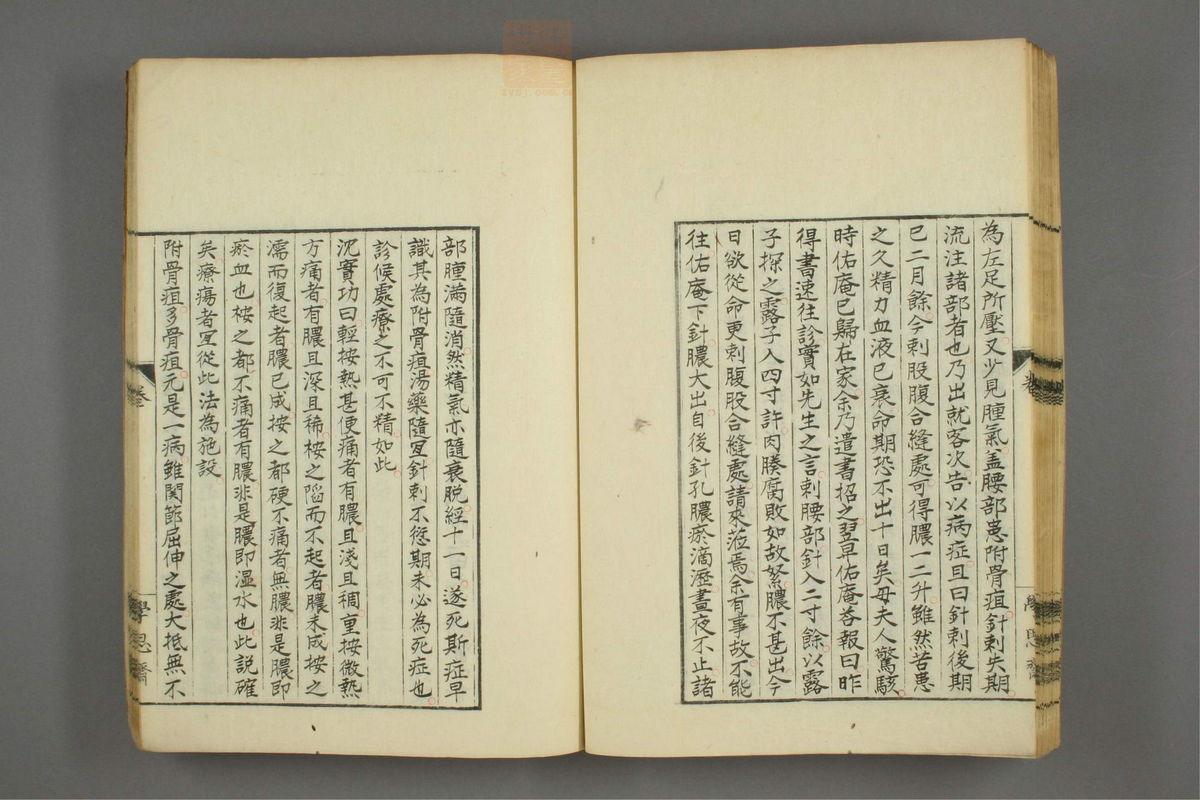 為左足所壓又少見腫氣蓋腰部患附骨疽針剌失期
流注諸部者也乃出就客次告以病症且曰針剌後期
已二月餘今剌股腹合縫處可得膿一二升雖然苦患
之久精力血液已衰命期恐不出十日矣母夫人驚駭
時佑庵已歸在家余乃遣書招之翌早佑庵答報曰昨
得書速往診實如先生之言剌腰部針入二寸餘以露
子探之露子入四寸許肉腠腐敗如故絮膿不甚出今
日欲從命更剌腹股合縫處請來蒞焉余有事故不能
往佑庵下針膿大出自後針孔膿瘀滴瀝晝夜不止諸
部腫滿隨消然精氣亦隨衰脫經十一日遂死斯症早
識其為附骨疽湯藥隨宜針剌不愆期未必為死症也
診候處療之不可不精如此
沉實功曰輕按熱甚便痛者有膿且淺且稠重按微熱
方痛者有膿且深且稀按之陷而不起者膿未成按之
濡而復起者膿已成按之都硬不痛者無膿非是膿即
瘀血也按之都不痛者有膿非是膿即濕水也此說確
矣療瘍者宜從此法為施設
附骨疽多骨疽元是一病雖関節屈伸之處大抵無不
學思齋